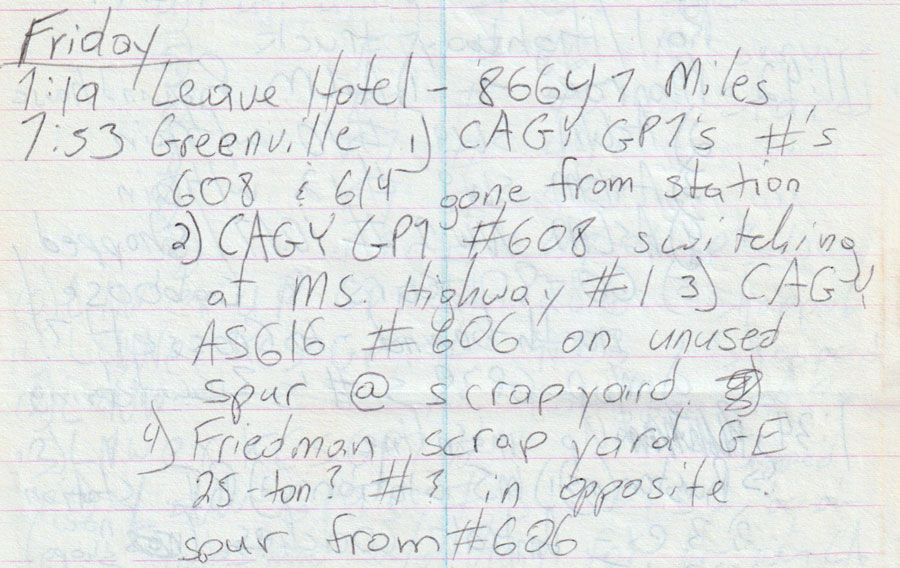 Friday
7:19 Leave Hotel - 86647 Miles
7:53 Greenville 1) CAGY GP7's #'s
608 & 614 gone from station
2) CAGY GP7 #608 switching
at MS. Highway #1 3) CAGY
AS616 # 606 on unused
spur @ scrap yard.
4) Friedman scrap yard GE
25-ton? #3 in opposite
spur from #606